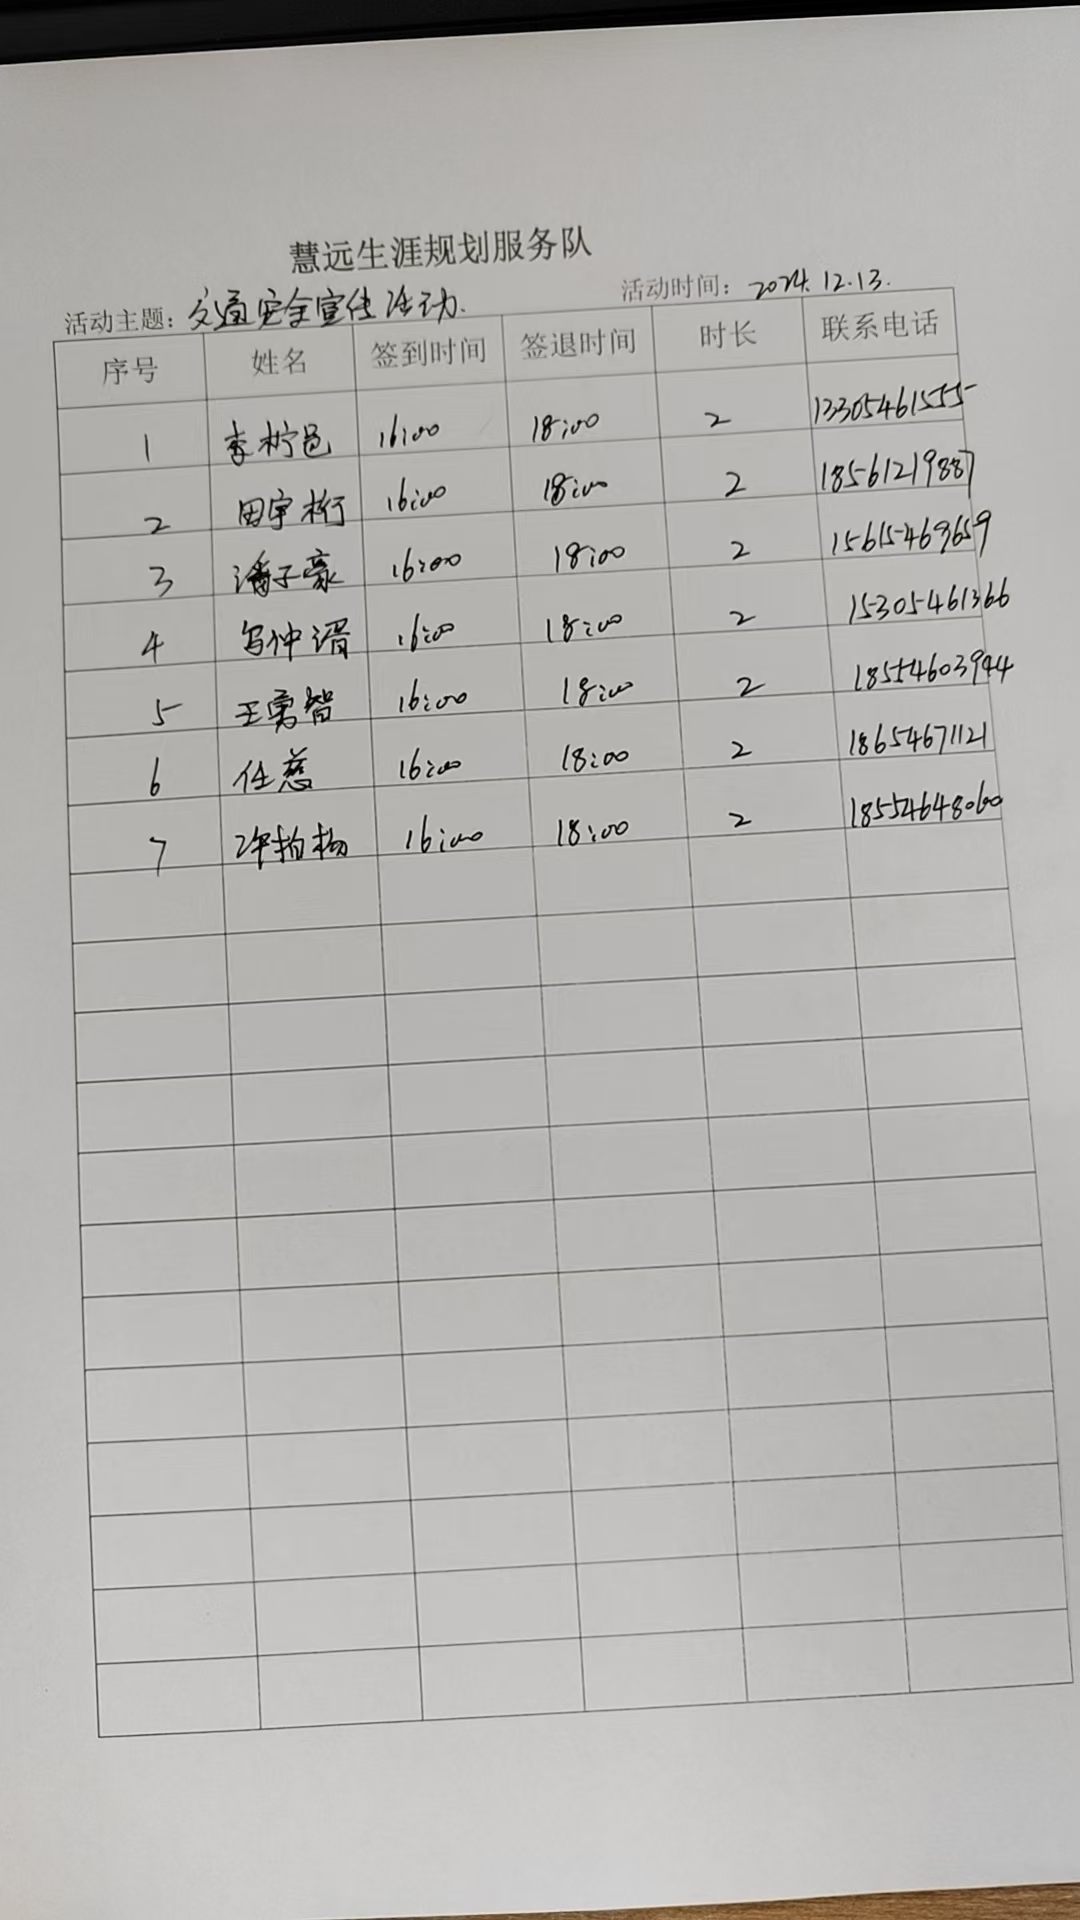 慧远生涯规划服务队
活动主题：交通安全宣传活动. 活动时间：2024.12.13.
序号 姓名 签到时间 签退时间 时长 联系电话
1 李柠邑 16:00 18:00 2 13305461555
2 田宇桁 16:00 18:00 2 18561219887
3 潘子豪 16:00 18:00 2 15615469659
4 16:00 18:00 2 15305461366
5 王勇智 16:00 18:00 2 18554603944
6 任慈 16:00 18:00 2 18654671121
7 16:00 18:00 2 18554648060